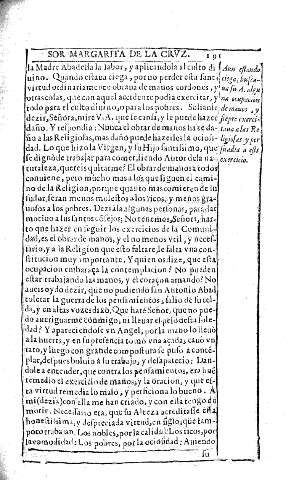 SOR MARGARITA DE LA CRVZ. 191
la Madre Abadesa la labor, y aplicandola al culto di
uino. Quando estaua ciega, por no perder esta santa
virtud ordinariamente obraua de manos cordones, y
otras cosas, que con aquel accidente podia exercitar, y
todo para el culto diuino, o para los pobres. Solianle
dezir, Señora, mire V. A. que se cansa, y le puede hazer
daño. Y respondia: Nunca el obrar de manos haze da-
ño a las Religiosas, mas daño puede hazerles la ociosi-
dad. Lo que hizo la Virgen, y su Hijo santissimo, que
se dignò de trabajar para comer, siendo Autor de la na
turaleza, quereis quitarme? El obrar de manos a todos
conuiene, pero mucho mas a los que siguen el cami-
no de la Religion, porque quanto mas comieren de su
sudor, seran menos molestos a los vicos, y menos gra-
uosos a los pobres. Dexa a algunas personas, para dar
motiuo a sus santos consejos: No tenemos, Señora, har-
to que hazer en seguir los exercicios de la Comuni-
dad, es el obrar de manos, y el no menos vtil, y neces-
sario, y a la Religion que esto faltare le falta vna con-
stitucion muy importante. Y quien os dize, que esta
ocupacion embaraça la contemplacion? No pueden
estar trabajando las manos, y el coraçon amando? No
aueis oydo dezir, que no pudiendo san Antonio Abad
tolerar la guerra de los pensamientos, salio de su cel-
da, y en altas vozes dixo, Que harè Señor, que no pue-
do aueriguarme conmigo, ni lleuar el peso desta sole-
dad? Y apareciendose vn Angel, por la mano lo lleuò
a la huerta, y en su presencia tomò vna açada, cauò vn
rato, y luego con grande compostura se puso a contē-
plar, despues boluia a su trabajo, y desaparecio: Dan-
dole a entender, que contra los pensamientos, era buē
remedio el exercicio de manos, y la oracion, y que es-
ta virtud remedia lo malo, y perficiona lo bueno. A
mi (dezia) con ella me han criado, y con ella tengo de
morir. Necessario era, que su Alteza acreditasse esta
honestissima, y despreciada virtud, en siglo, que tam-
poco trabajan. Los nobles, por la calidad: Los ricos, por
la comodidad: Los pobres, por la ociosidad: Auiendo
su
Aun estando
ciega, busca-
ua su A. algu
na ocupacion
de manos, y
siepre exerci-
taua a las Re
ligiosas y per
suadia a este
exercicio.